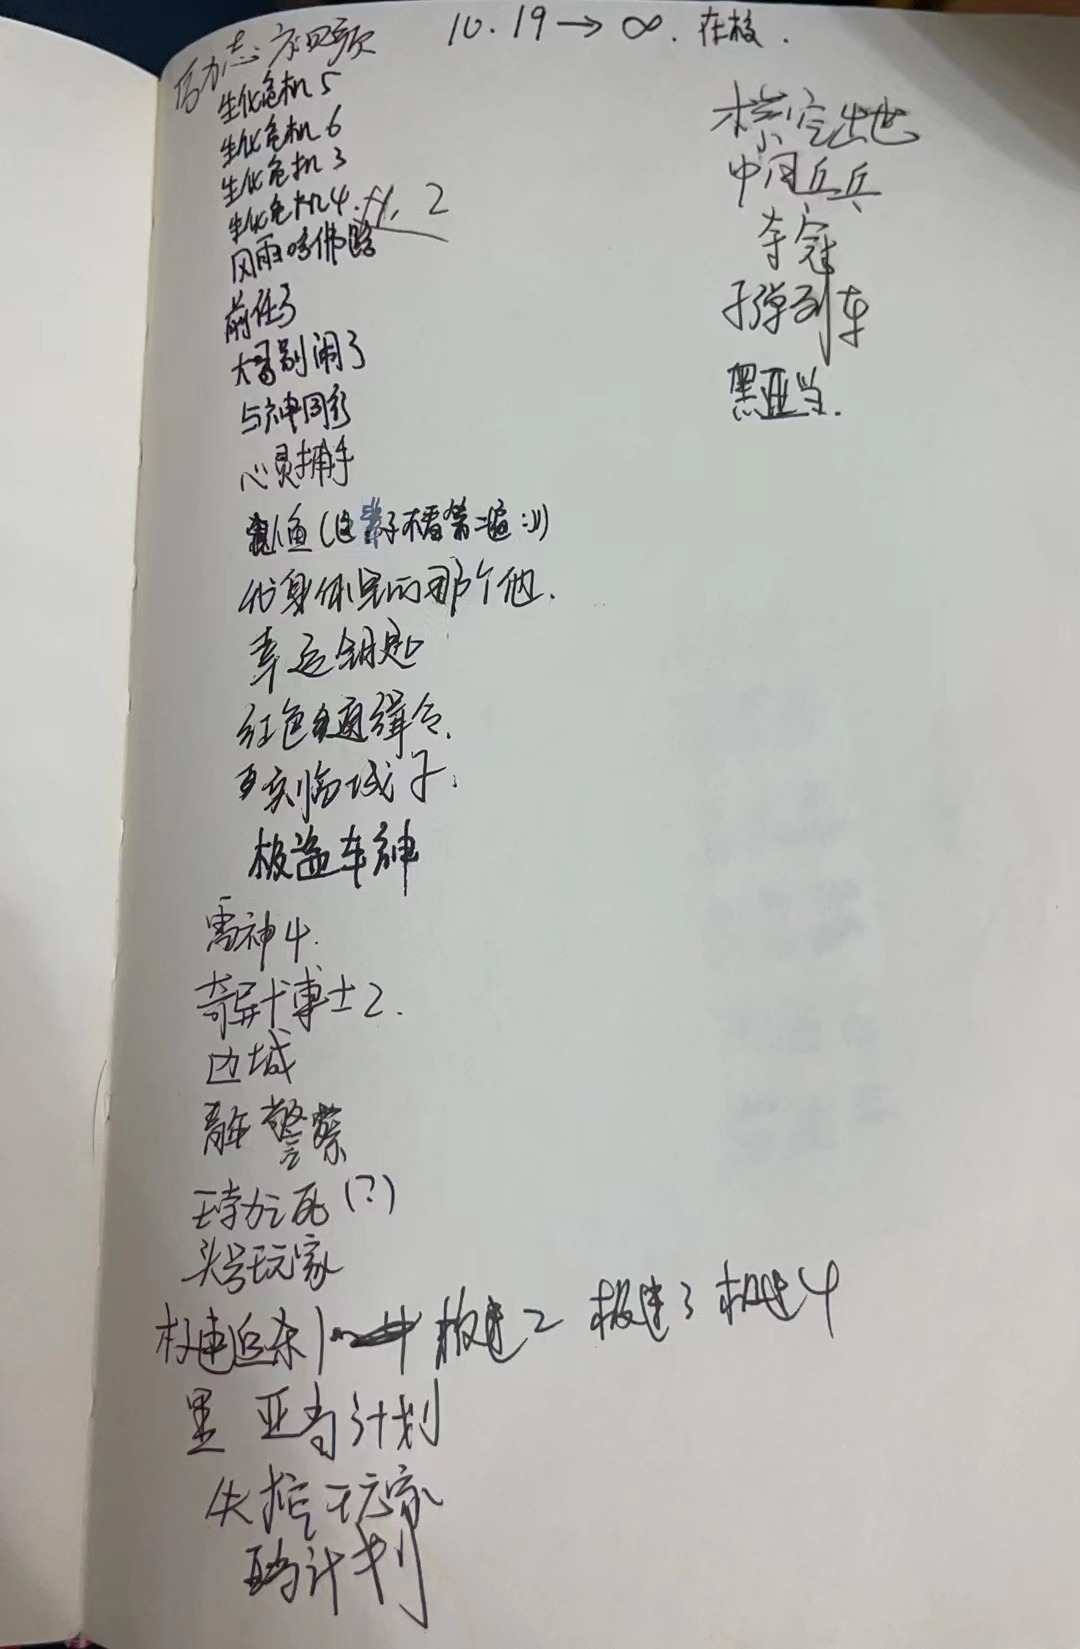 10.19→∞. 在校.
生化危机5
生化危机6
生化危机3
生化危机4. 2
风雨哈佛路
前任3
大哥别闹了
与神同行
心灵捕手
人鱼(这辈子不看第二遍:))
代身体里的那个他.
幸运钥匙
红色通缉令.
极盗车神
雷神4.
奇异博士2.
边城
青年警察
王勃之死(?)
头号玩家
极速追杀1 极速2 极速3 极速4
黑 亚当计划
失控玩家
亚当计划
横空出世
中国乒乓
夺冠
子弹列车
黑亚当.